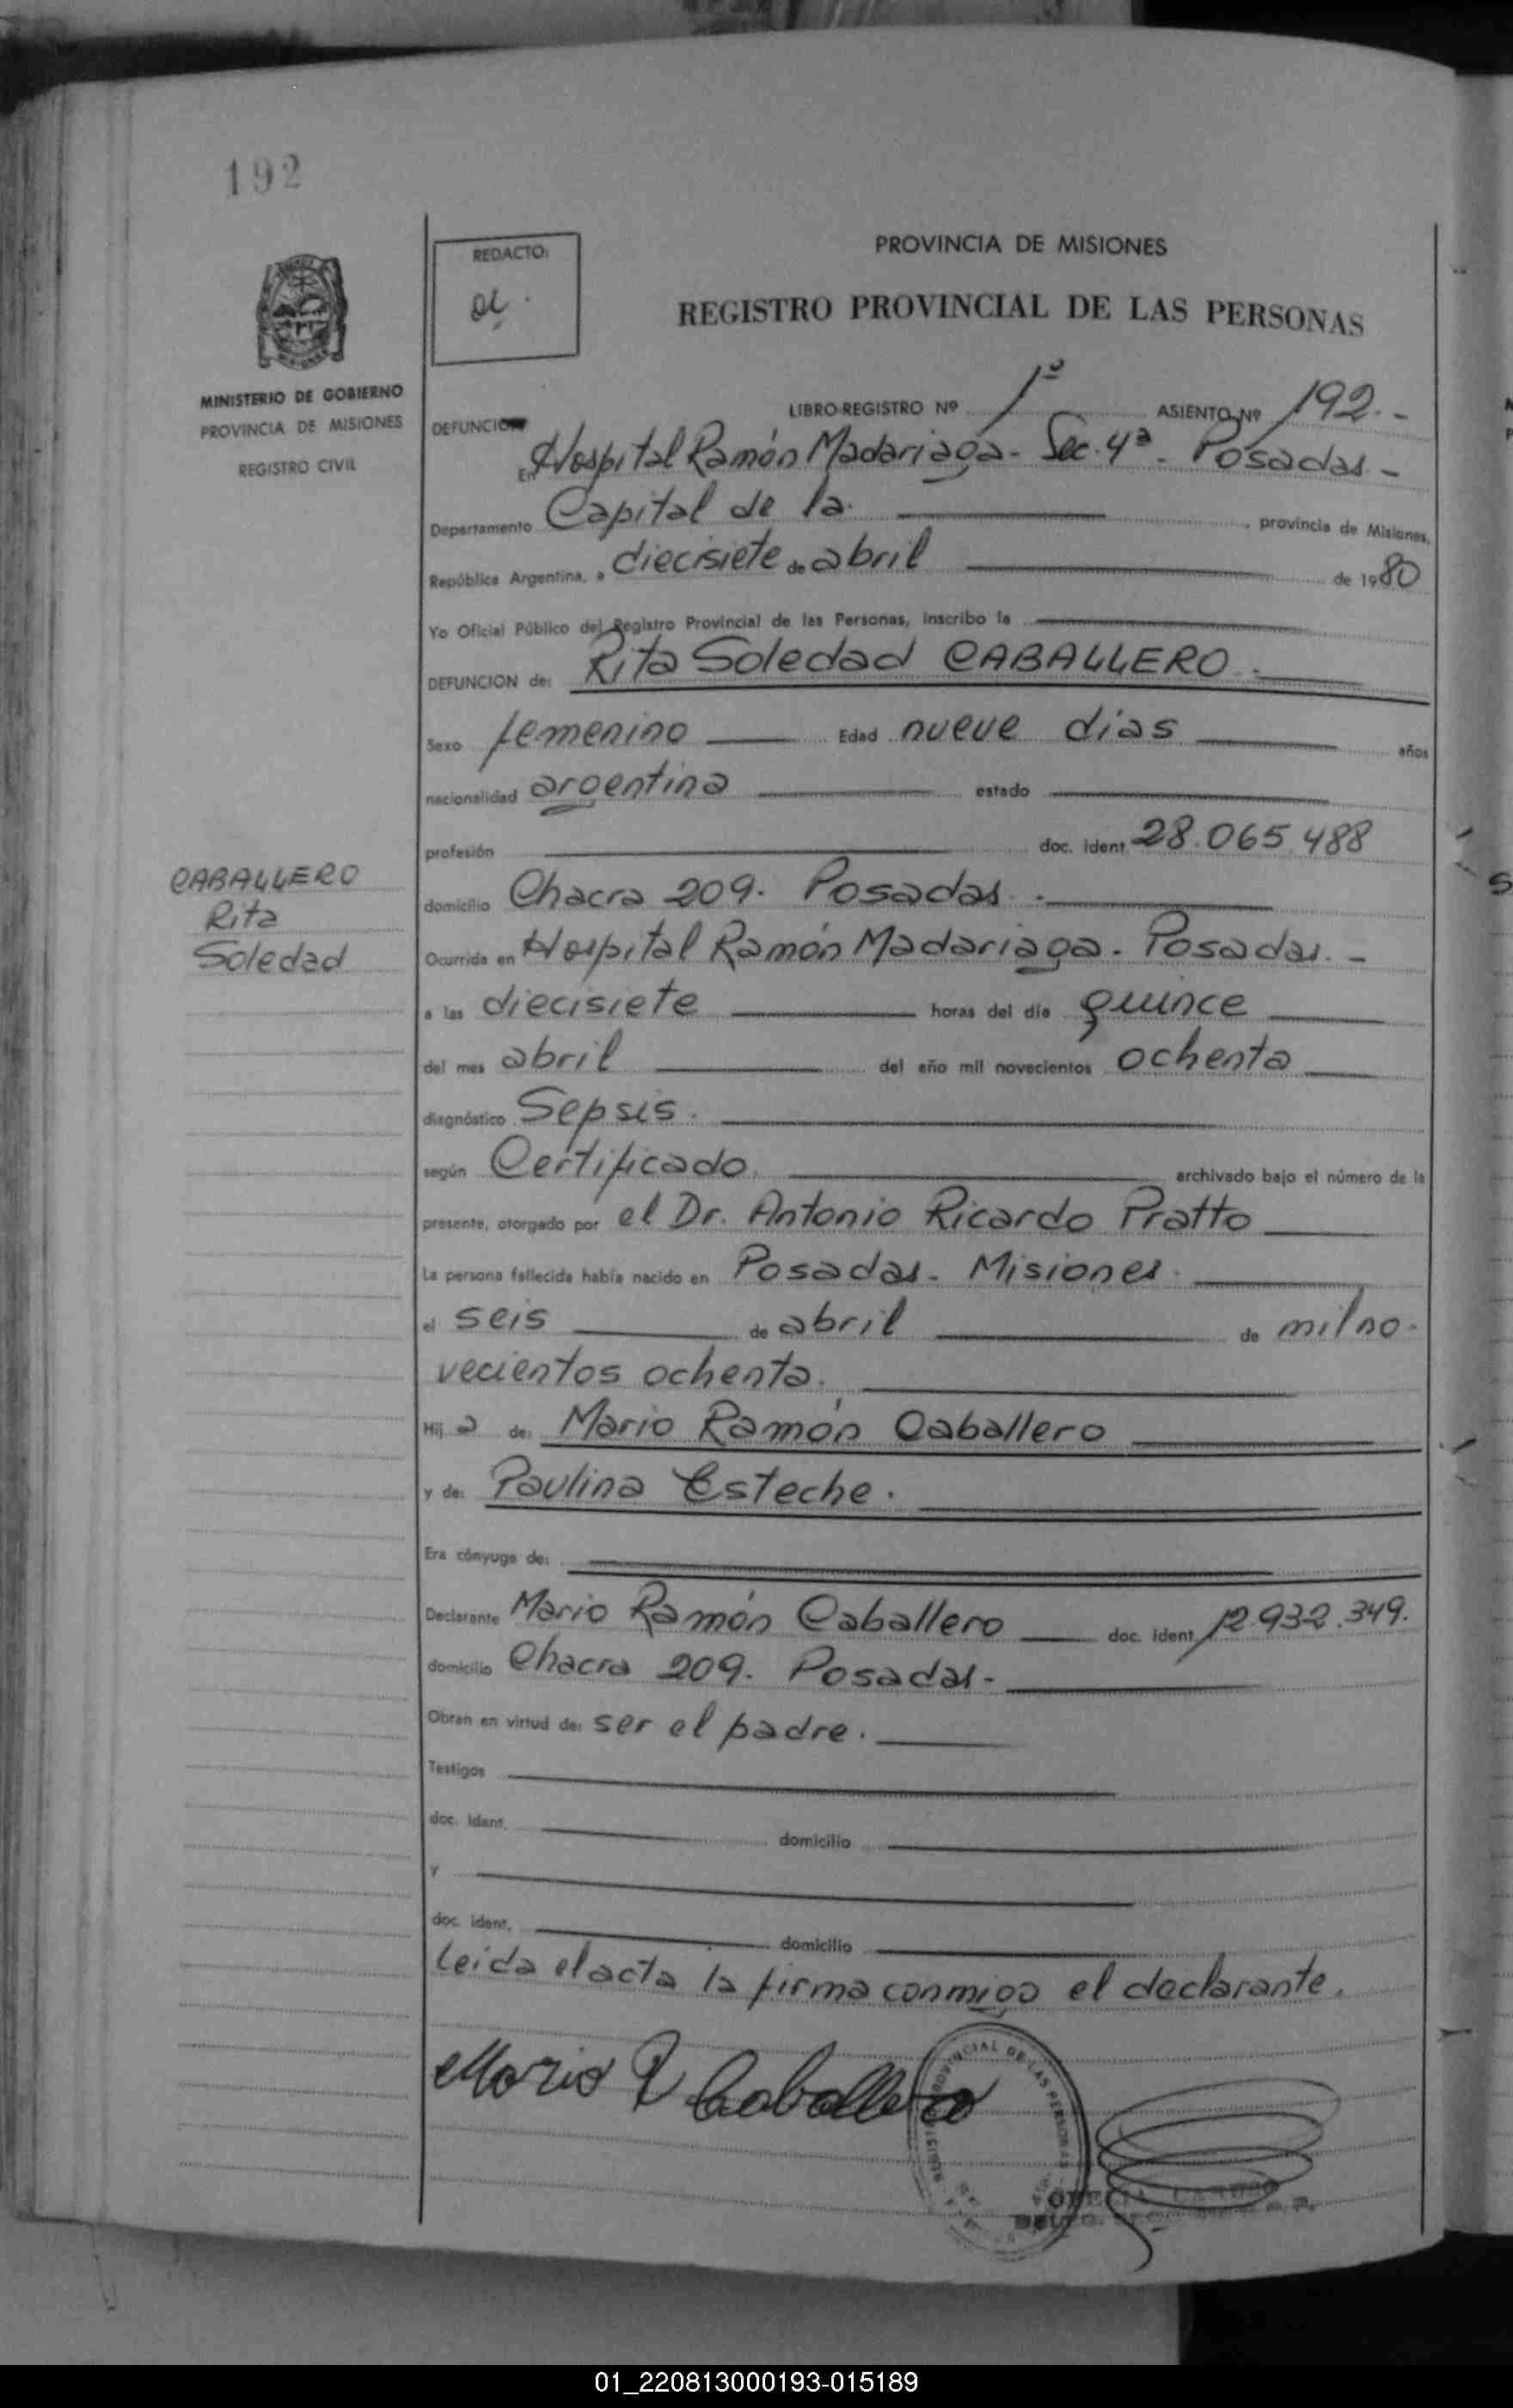 192
REDACTO:
PROVINCIA DE MISIONES
REGISTRO PROVINCIAL DE LAS PERSONAS
MINISTERIO DE GOBIERNO
PROVINCIA DE MISIONES
REGISTRO CIVIL
LIBRO-REGISTRO Nº 1º ASIENTO Nº 192.-
DEFUNCION
En Hospital Ramón Madariaga - Sec. 4ª - Posadas -
Departamento Capital de la. , provincia de Misiones,
República Argentina, a diecisiete de abril de 1980
Yo Oficial Público del Registro Provincial de las Personas, inscribo la
DEFUNCION de: Rita Soledad CABALLERO.-
Sexo femenino Edad nueve dias años
nacionalidad argentina estado
profesión doc. ident. 28.065.488
CABALLERO
Rita
Soledad
domicilio Chacra 209. Posadas.
Ocurrida en Hospital Ramón Madariaga - Posadas. -
a las diecisiete horas del día quince
del mes abril del año mil novecientos ochenta
diagnóstico Sepsis.
según Certificado. archivado bajo el número de la
presente, otorgado por el Dr. Antonio Ricardo Pratto
La persona fallecida había nacido en Posadas - Misiones.
el seis de abril de mil no-
vecientos ochenta.
Hij a de: Mario Ramón Caballero
y de: Paulina Esteche.
Era cónyuge de:
Declarante Mario Ramón Caballero doc. ident. 12.932.349.
domicilio Chacra 209. Posadas -
Obran en virtud de: ser el padre.
Testigos
doc. ident. domicilio
y
doc. ident. domicilio
Leida el acta la firma conmigo el declarante.
Mario R Caballero
01_220813000193-015189